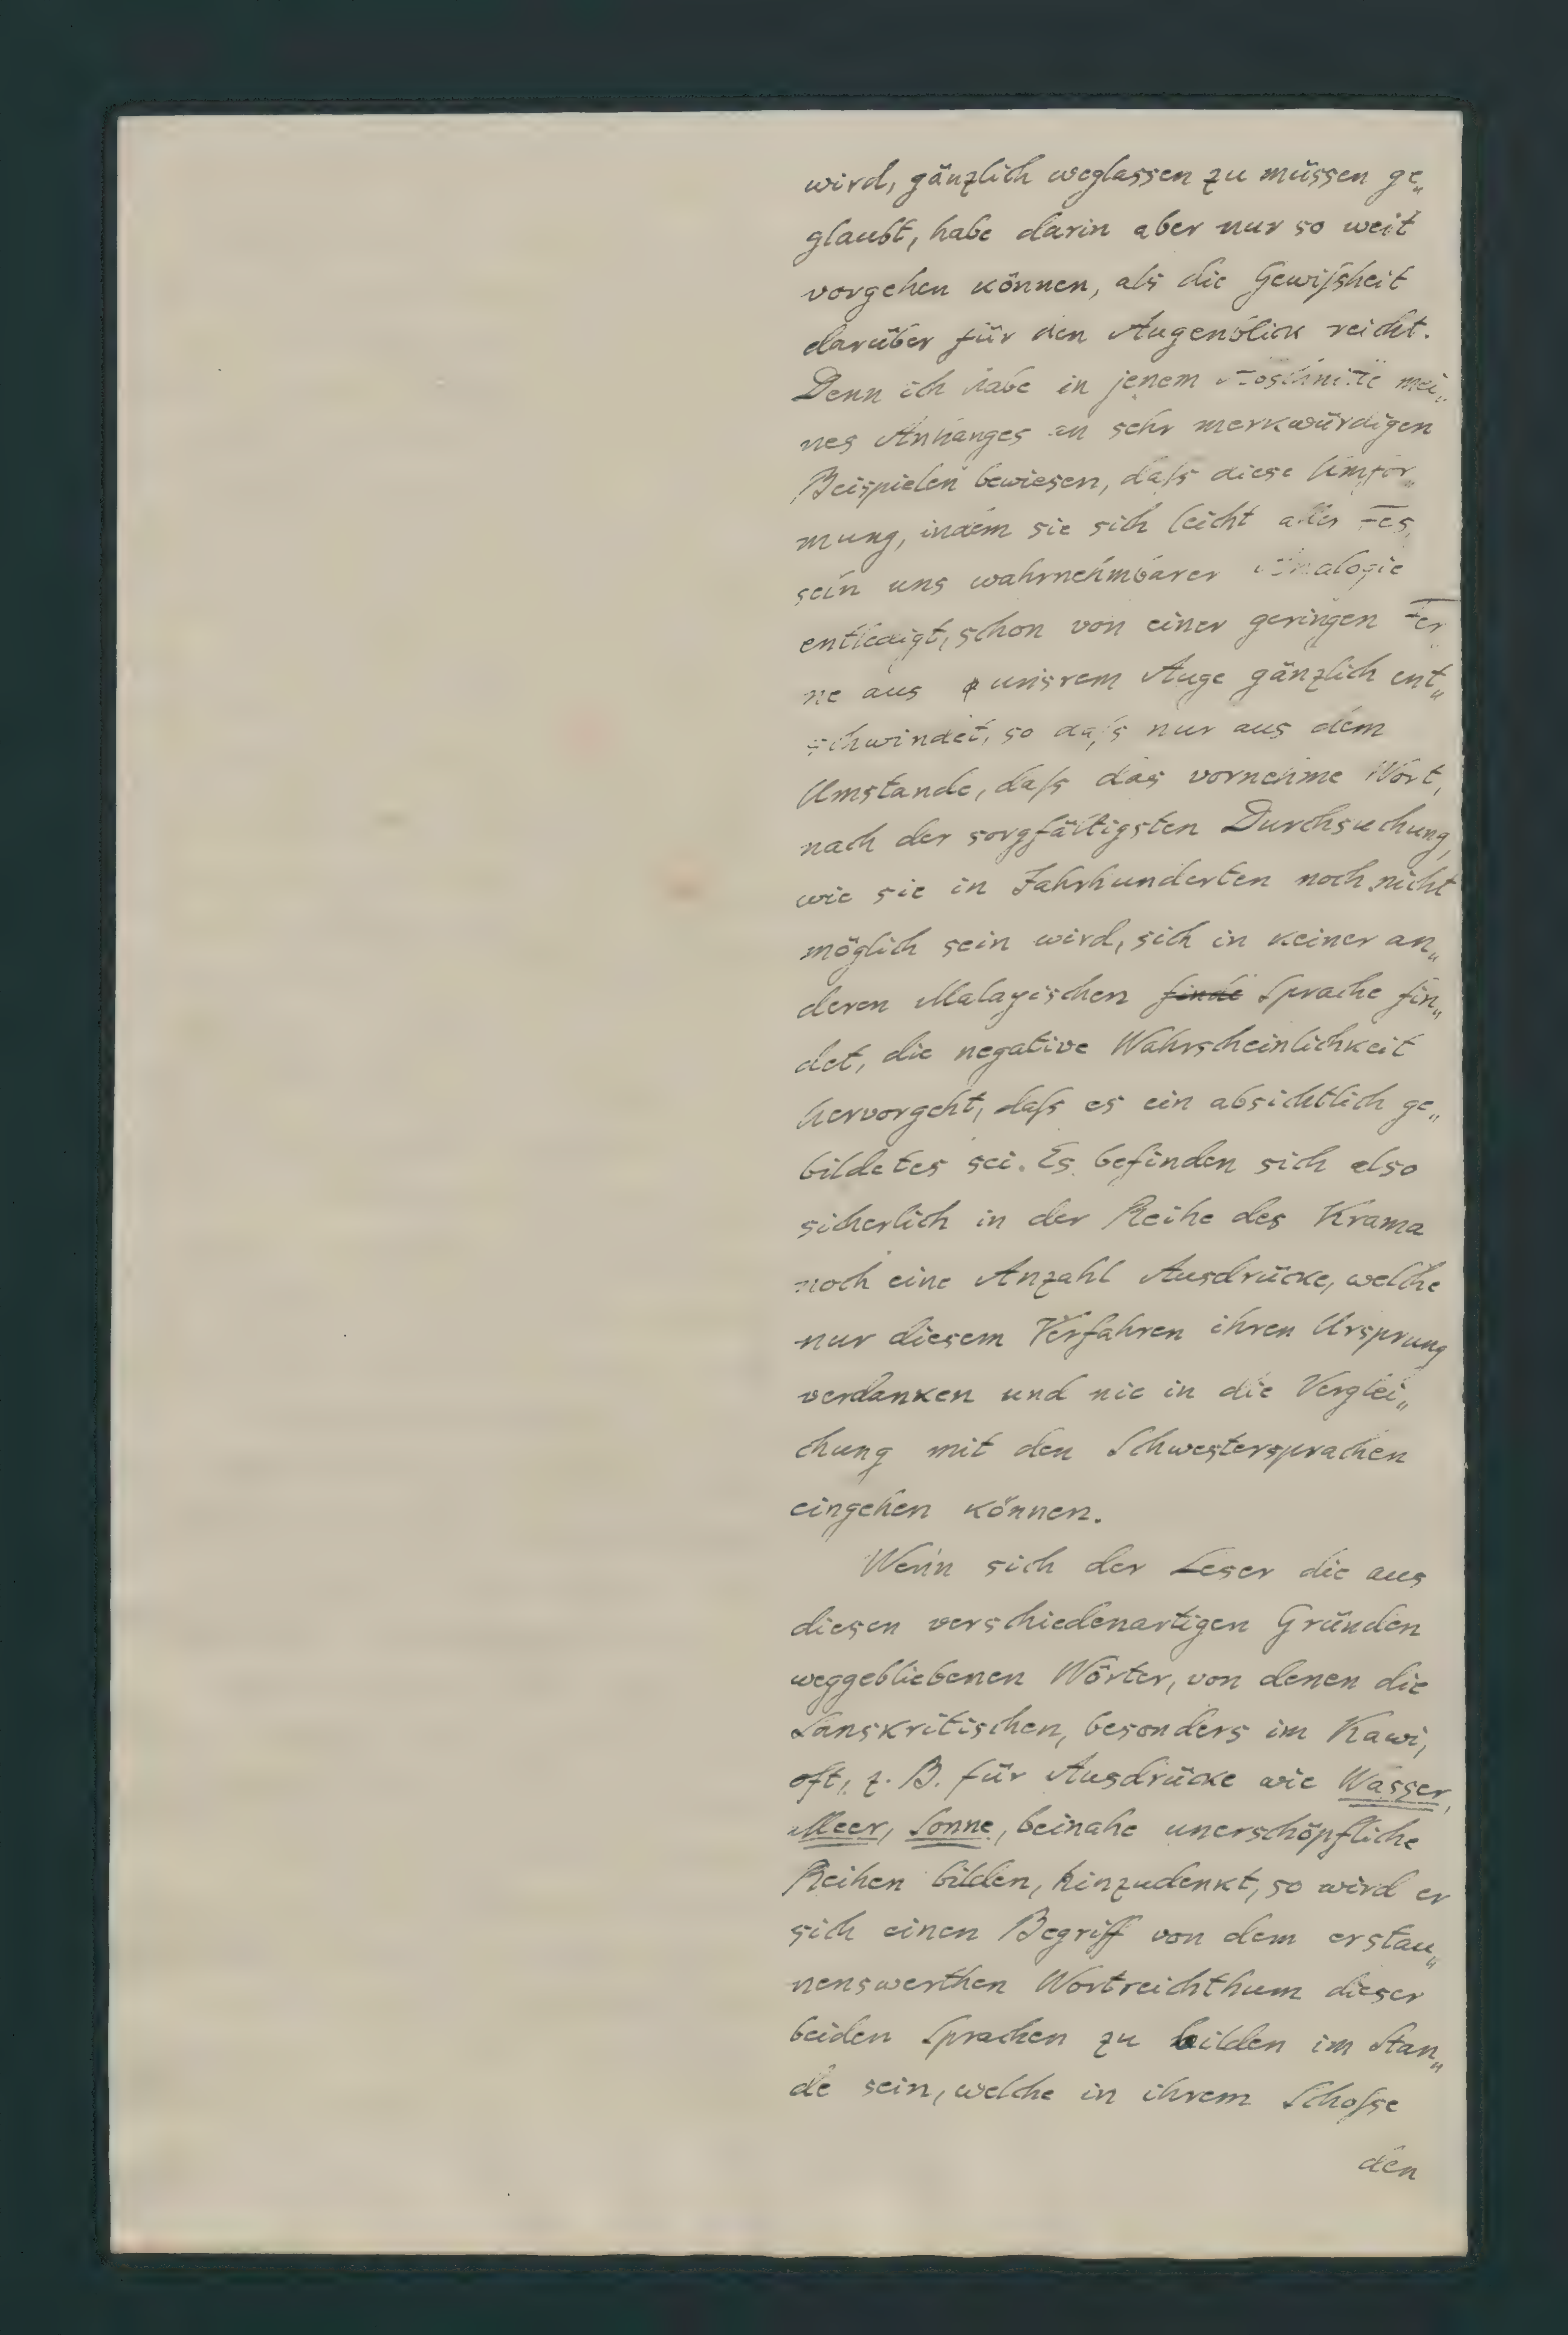 wird, gänzlich weglassen zu müssen ge„
glaubt, habe darin aber nur so weit
vorgehen können, als die Gewiſsheit
darüber für den Augenblick reicht.
Denn ich habe in jenem Abschnitte mei„
nes Anhanges an sehr merkwürdigen
Beispielen bewiesen, daſs diese Umfor„
mung, indem sie sich leicht aller Fes„
seln uns wahrnehmbarer Analogie
entledigt, schon von einer geringen Fer„
ne aus unsrem Auge gänzlich ent„
schwindet, so daſs nur aus dem
Umstande, daſs das vornehme Wort,
nach der sorgfältigsten Durchsuchung,
wie sie in Jahrhunderten noch nicht
möglich sein wird, sich in keiner an„
deren Malayischen finde Sprache fin„
det, die negative Wahrscheinlichkeit
hervorgeht, daſs es ein absichtlich ge„
bildetes sei. Es befinden sich also
sicherlich in der Reihe des Krama
noch eine Anzahl Ausdrücke, welche
nur diesem Verfahren ihren Ursprung
verdanken und nie in die Verglei„
chung mit den Schwestersprachen
eingehen können.
Wenn sich der Leser die aus
diesen verschiedenartigen Gründen
weggebliebenen Wörter, von denen die
Sanskritischen, besonders im Kawi,
oft, z. B. für Ausdrücke wie Wasser,
Meer, Sonne, beinahe unerschöpfliche
Reihen bilden, hinzudenkt, so wird er
sich einen Begriff von dem erstau„
nenswerthen Wortreichthum dieser
beiden Sprachen zu bilden im Stan„
de sein, welche in ihrem Schoſse
den